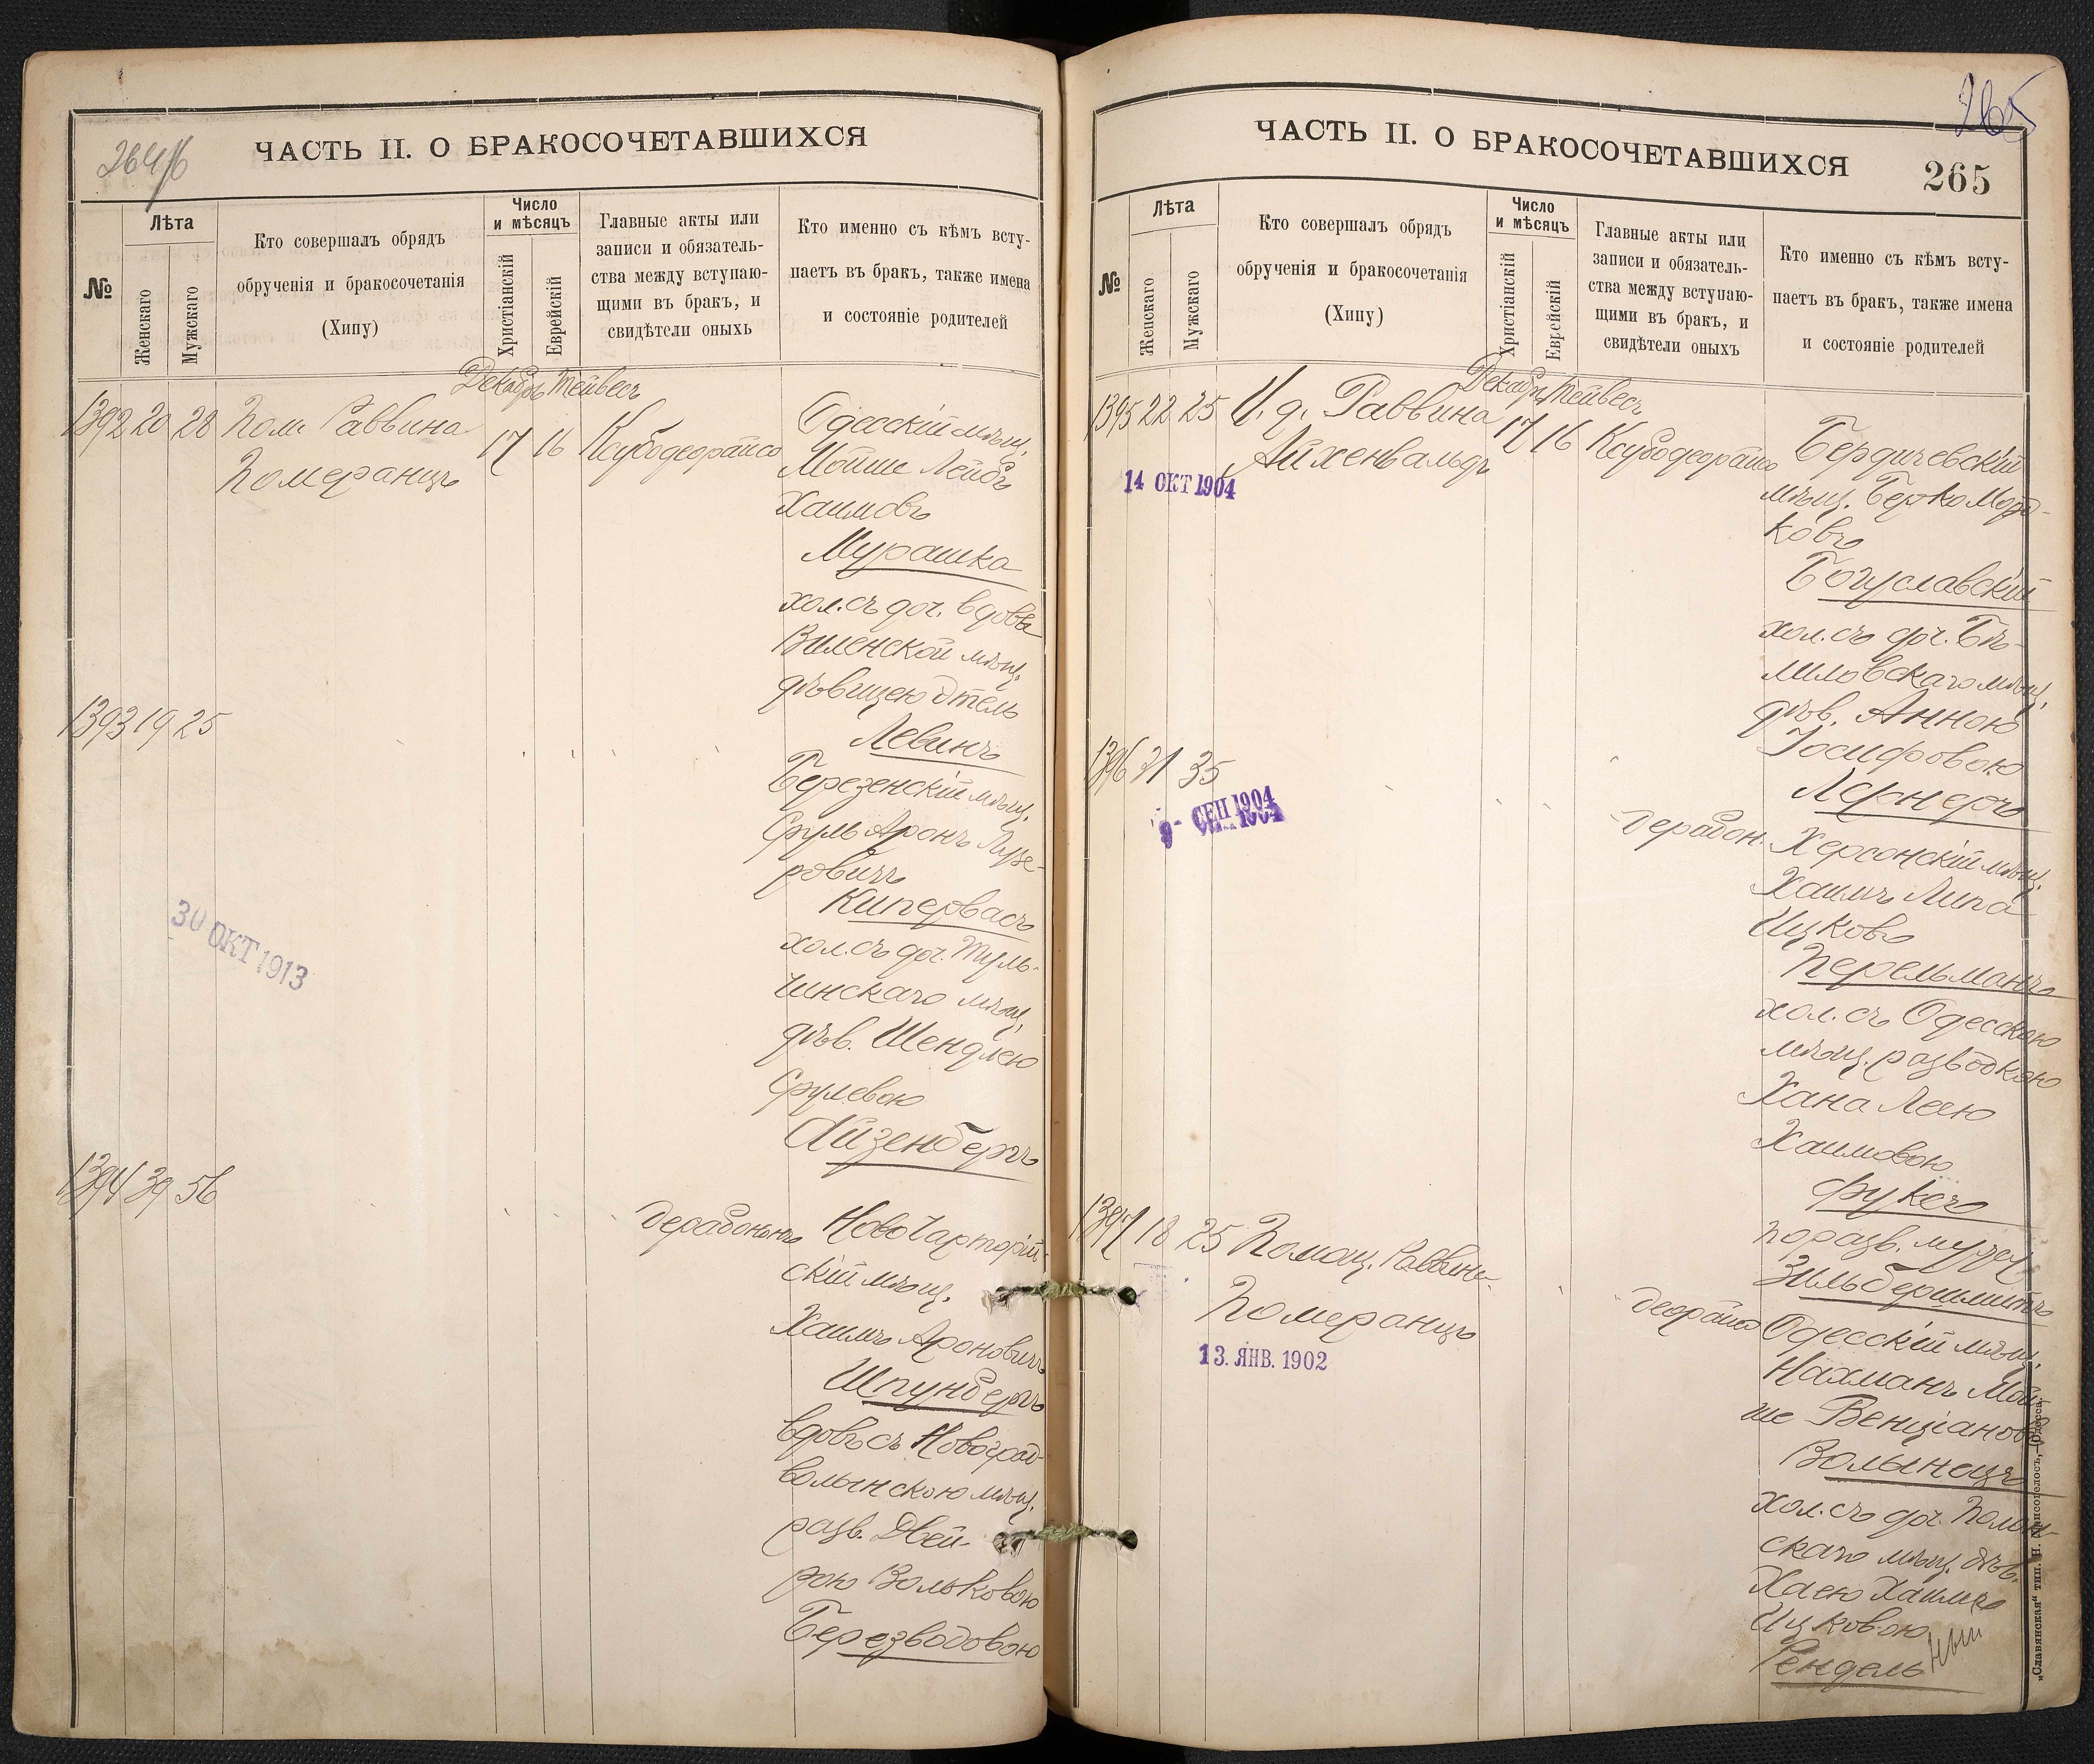 264 об
ЧАСТЬ II. О БРАКОСОЧЕТАВШИХСЯ
№
Лѣта
Женскаго
Мужскаго
Кто совершалъ обрядъ
обрученія и бракосочетанія
(Хипу)
Число
и мѣсяцъ
Христіанскій
Еврейскій
Главные акты или
записи и обязатель-
ства между вступаю-
щими въ бракъ, и
свидѣтели оныхь
Кто именно съ кѣмъ всту-
паетъ въ бракъ, также имена
и состояніе родителей
Декабрь Тейвесъ
1392 20 28 Пом. Раввина
Померанцъ
17 16
Одесскій мѣщ.
Мойше Лейбъ
Хаимовъ
Мурашка
хол. съ доч. вдовы
Виленской мѣщ.
дѣвицею Этель
Левинъ
1393 19 25
Березенскій мѣщ.
Сруль Аронъ Лузе-
ровичъ
Кипервасъ
хол. съ доч. Туль-
чинскаго мѣщ.
дѣв. Шендлею
Срулевою
Айзенбергъ
30 ОКТ 1913
1394 39 56
Ново Чарторій-
скій мѣщ.
Хаимъ Ароновичъ
Шпунбергъ
вдовъ съ Новоград-
волынскою мѣщ.
разв. Двей-
рою Вольковою
Березводовою
265
ЧАСТЬ II. О БРАКОСОЧЕТАВШИХСЯ
265
№
Лѣта
Женскаго
Мужскаго
Кто совершалъ обрядъ
обрученія и бракосочетанія
(Хипу)
Число
и мѣсяцъ
Христіанскій
Еврейскій
Главные акты или
записи и обязатель-
ства между вступаю-
щими въ бракъ, и
свидѣтели оныхъ
Кто именно съ кѣмъ всту-
паетъ въ бракъ, также имена
и состояніе родителей
Декабрь Тейвесъ
1395 22 25 И. д. Раввина
Айхенвальдъ
17 16
14 ОКТ 1904
Бердичевскій
мѣщ. Берко Морд-
ковъ
Богуславскій
хол. съ доч. Бѣ-
лиловскаго мѣщ.
дѣв. Анною
Іосифовою
Лернеръ
1396 21 35
9 - СЕН 1904
Херсонскій мѣщ.
Хаимъ Липа
Ицковъ
Перельманъ
хол. съ Одесскою
мѣщ. разводкою
Хана Леею
Хаимовою
Фуксъ
по разв. мужу
Зильбершмитъ
1397 18 25 Помощ. Раввина
Померанцъ
13. ЯНВ. 1902
Одесскій мѣщ.
Нахманъ Мой-
ше Венціановъ
Волынецъ
хол. съ доч. Полон-
скаго мѣщ. дѣв.
Хаею Хаимъ
Ицковою
Рендель
„Славянская“ тип. Н. Хрисогелосъ, Одесса.